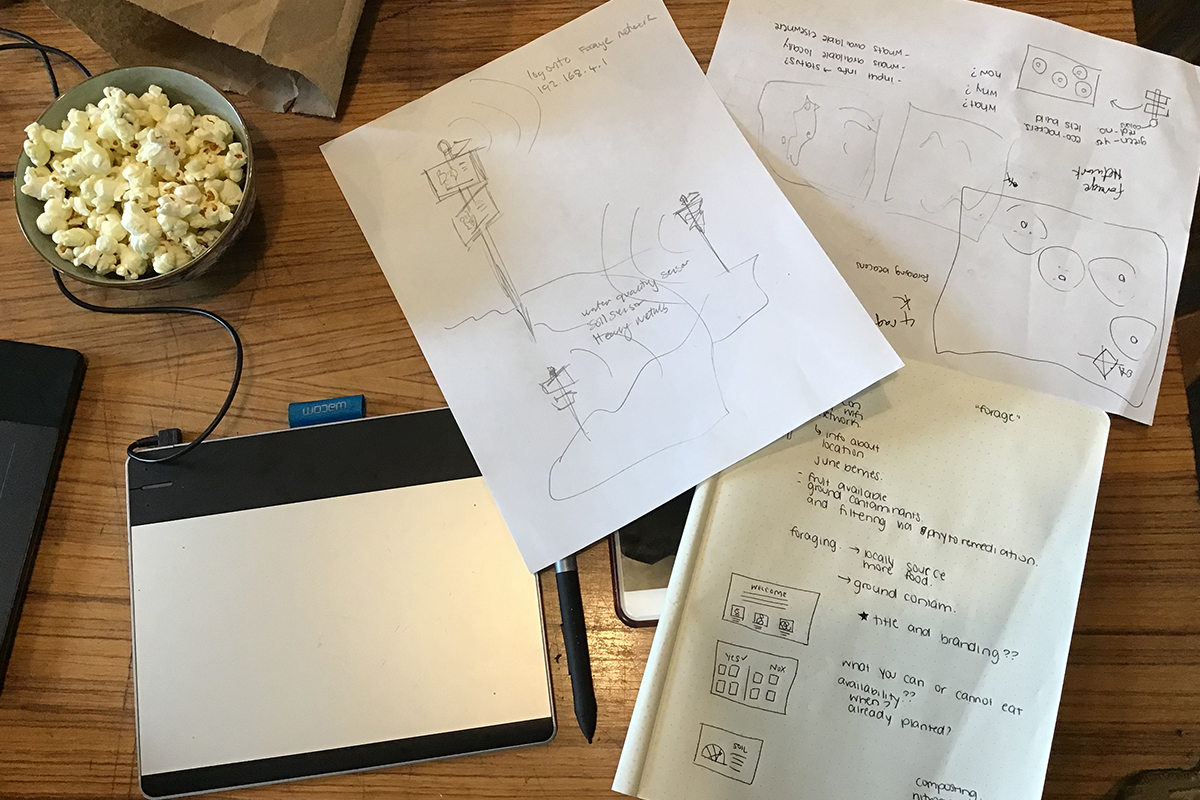 log onto Forage Network
192.168.4.1
water quality sensor
soil sensor
Heavy metals
- input info → status?
- whats available locally
- whats available elsewhere
what?
why?
how?
eco-rockers
lets build
green-yes
red-no
forage
network
foraging beacons
wacom
"forage"
wifi
network
↳ info about
location
june berries.
- fruit available
- ground contaminants
and filtering via phytoremediation.
foraging. → locally source
more food.
→ ground contam.
★ title and branding??
WELCOME
YES✓ NOX
SOIL
what you can or cannot eat
availability??
when?
already planted?
composting